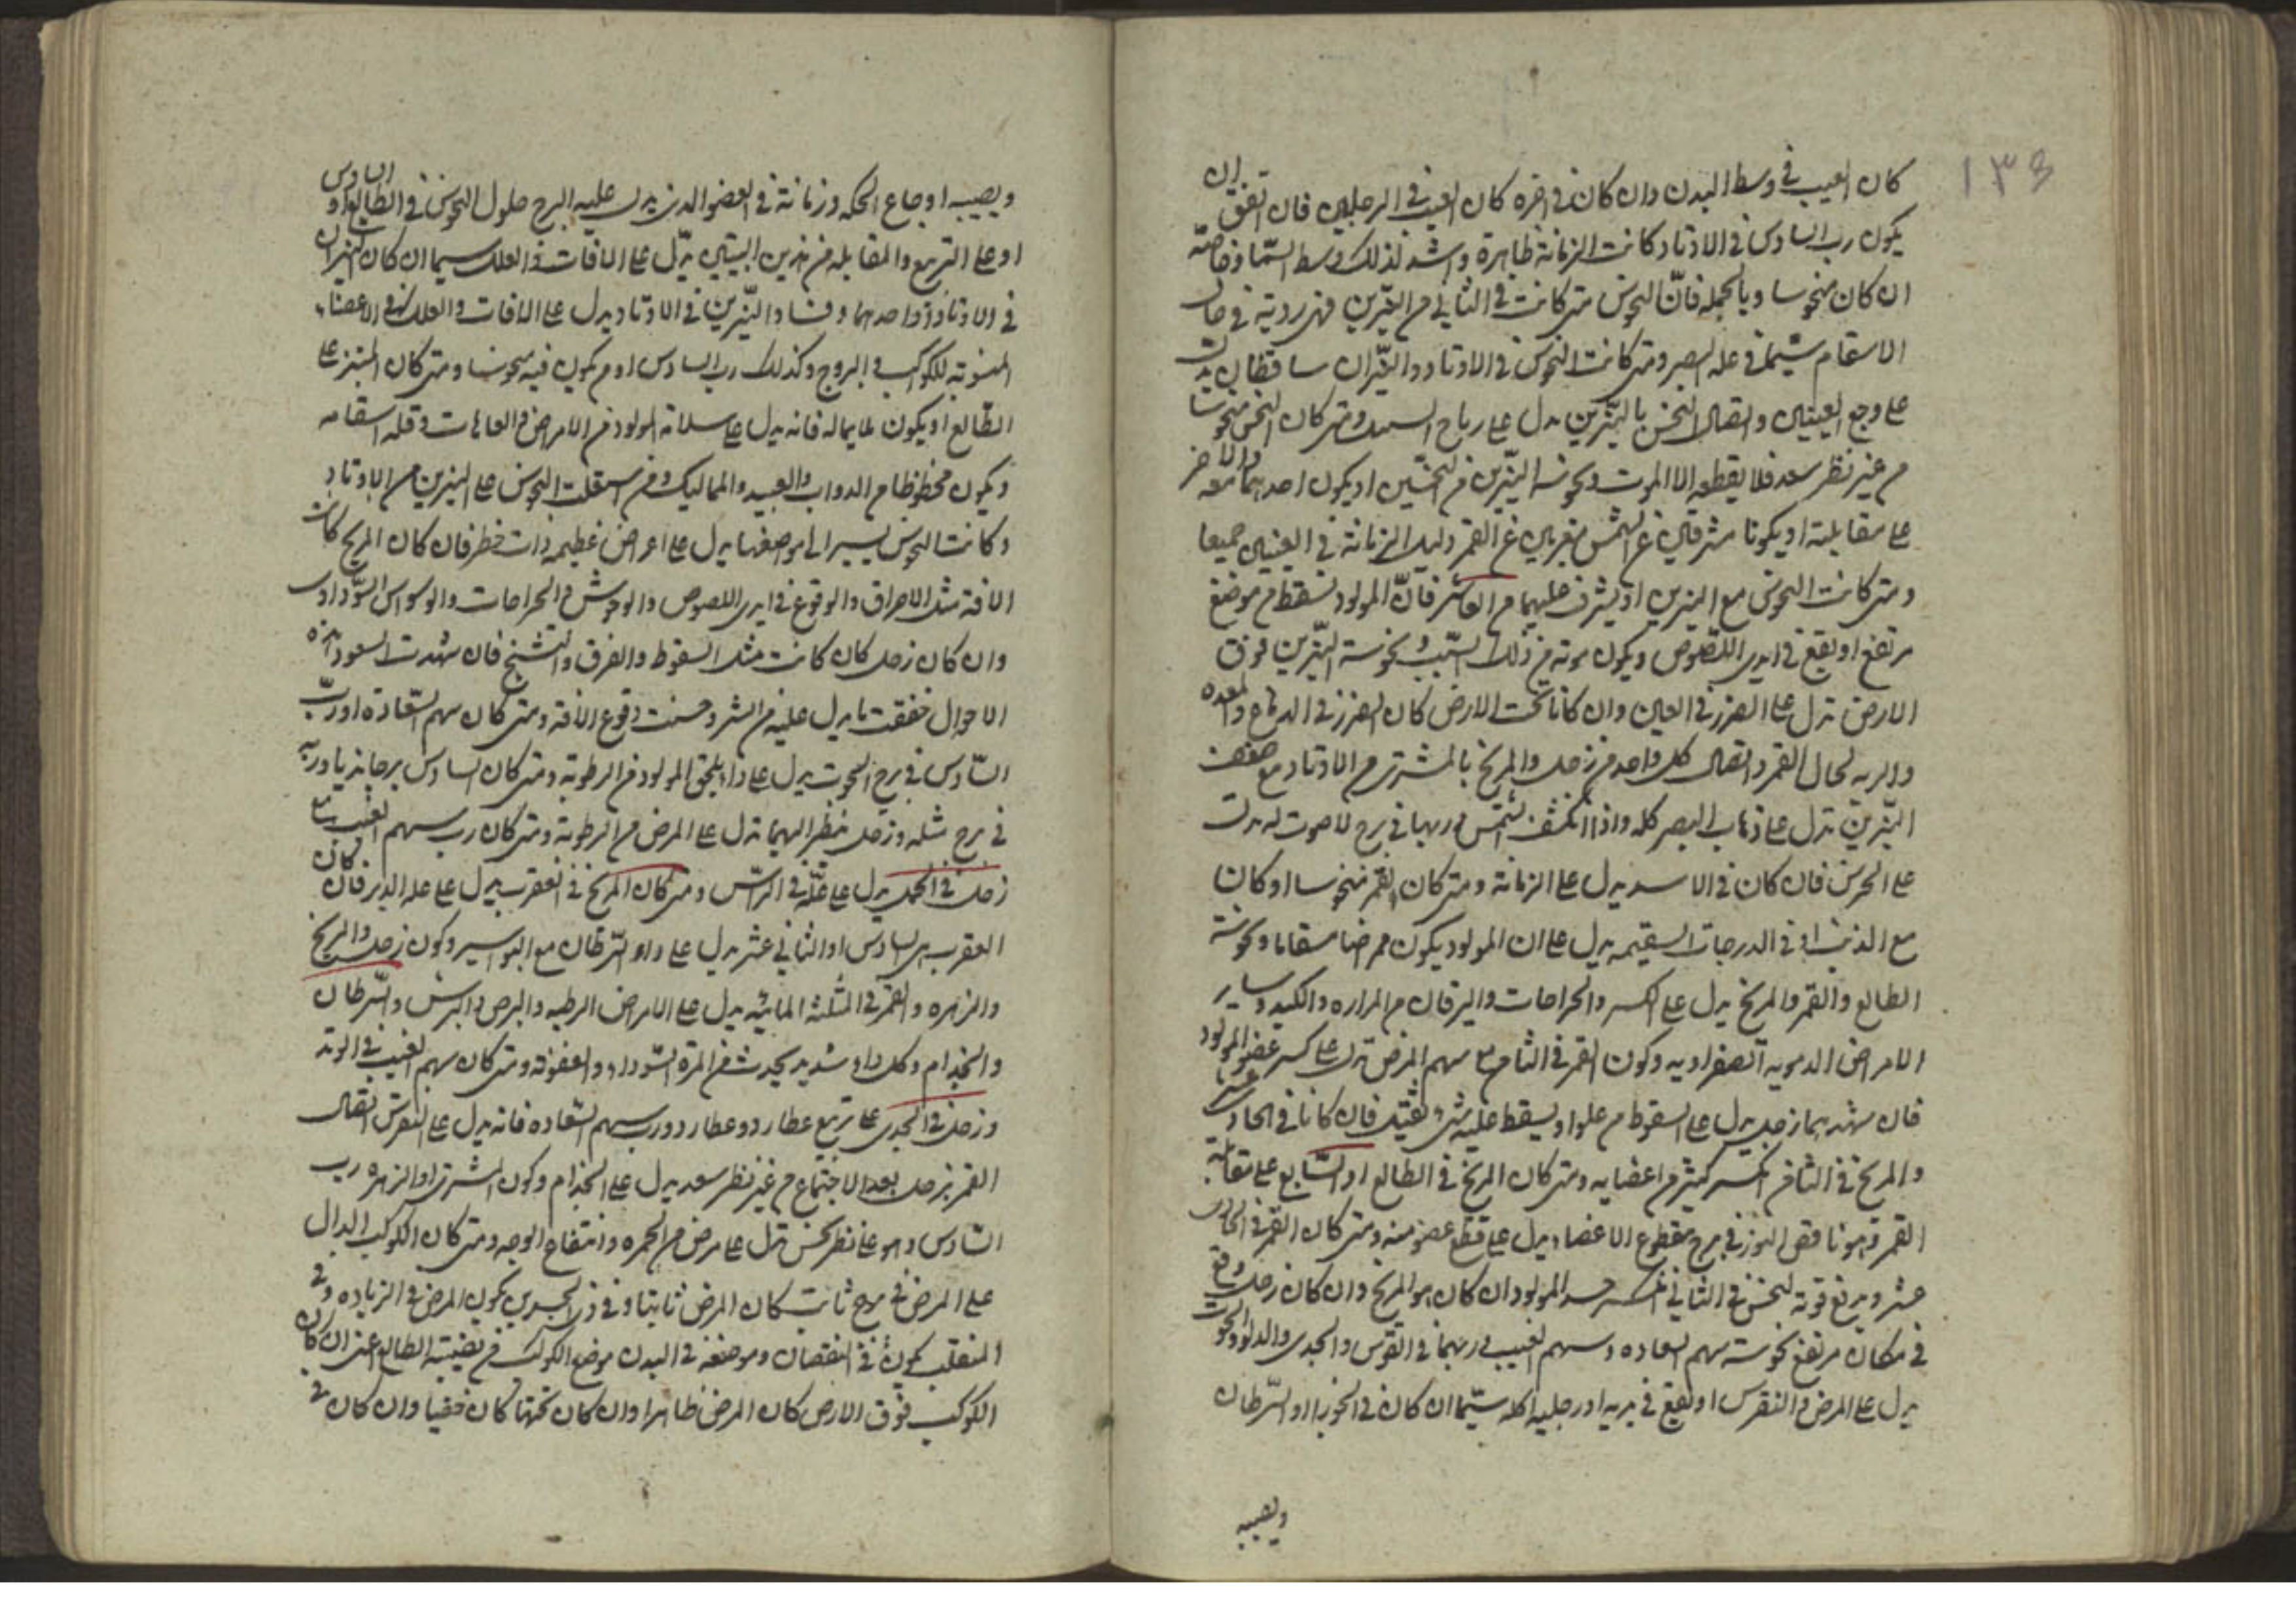 ١٣٥
كان العيب في وسط البدن وان كان في اخره كان العيب في الرجلين فان اتفق ان
يكون رب السادس في الاوتاد كانت الزمانة ظاهرة واشد لذلك وسط السما وخاصة
ان كان منحوسا وبالجمله فانّ النحوس متى كانت في الثاني من النيّرين فهى ردية في حال
الاسقام سيما في علة البصر ومتى كانت النحوس في الاوتاد والنيّران ساقطان يدلّ
على وجع العينين واتصال النحس بالنيّرين يدل على رياح السبل ومتى كان النحس منحوسا
من غير نظر سعد فلا يقطعه الا الموت ونحوسة النيّرين من النحسين او يكون احدهما معه والاخر
على مقابلته او يكونا مشرقين عن الشمس مغربين عن القمر دليل الزمانة في العينين جميعا
ومتى كانت النحوس مع النيرين او يشرف عليهما من العاشر فانّ المولود يسقط من موضع
مرتفع او يقع في ايدى اللصوص ويكون موته من ذلك السّبب ونحوسة النيّرين فوق
الارض تدل على الضرر في العين وان كانا تحت الارض كان الضرر في الدماغ والمعده
والريه لحال القمر واتصال كل واحد من زحل والمريخ بالمشترى من الاوتاد مع ضعف
النيّرين تدل على ذهاب البصر كله واذا انكسفت الشمس وربها في برج لا صوت له يدلّ
على الخرس فان كان في الاسد يدل على الزمانة ومتى كان القمر منحوسا او كان
مع الذنب او في الدرجات السقيمه يدل على ان المولود يكون ممراضا مسقاما ونحوسة
الطالع والقمر والمريخ يدل على الكسر والجراحات واليرقان من المراره والكبد وساير
الامراض الدمويه الصفراويه وكون القمر في الثامن مع سهم المرض تدل على كسر عضو المولود
فان شهدهما زحل يدل على السقوط من علو او يسقط عليه شى ثقيل فان كانا في الحادى عشر
والمريخ في الثامن انكسر كثير من اعضايه ومتى كان المريخ في الطالع او السّابع على مقابلة
القمر وهو ناقص النور في برج مقطوع الاعضا يدل على قطع عضو منه ومتى كان القمر في الحادى
عشر ويدفع قوته لنحس في الثاني انكسر جسد المولود ان كان هو المريخ وان كان زحل وقع
في مكان مرتفع نحوسة سهم السعاده وسهم الغيب وربهما في القوس والجدى والدلو والحوت
يدل على المرض والنقرس او يقع في يديه او رجليه اكله سيّما ان كان في الجوزا او السّرطان
ويصيبه
ويصيبه اوجاع الحكه وزمانة في العضو الذى يدل عليه البرج حلول النحوس في الطالع او السادس
او على التربيع والمقابله من هذين البيتين يدّل على الافات والعلل سيما ان كان النيران
في الاوتاد او احدهما وفساد النيّرين في الاوتاد يدل على الافات والعلل في الاعضا
المنسوبه للكواكب والبروج وكذلك رب السادس او من يكون فيه منحوسا ومتى كان المبتز على
الطّالع او يكون لما يماله فانه يدل على سلامة المولود من الامراض والعاهات وقلة اسقامه
ويكون محظوظا من الدواب والعبيد والمماليك ومتى استعلت النحوس على النيرين من الاوتاد
وكانت النحوس يسير الى موضعها يدل على اعراض عظيمه ذات خطر فان كان المريخ كانت
الافة مثل الاحراق والوقوع في ايدى اللصوص والوحوش والجراحات والوسواس السّوداوى
وان كان زحل كان كانت مثل السقوط والغرق والتشنج فان شهدت السعود هذه
الاحوال خففت ما يدل عليه من الشر وحسنت وقوع الافة ومتى كان سهم السّعادة او ربّ
السّادس في برج الحوت يدل على داء يلحق المولود من الرطوبة ومتى كان السادس برجا نديا وربه
في برج مثله وزحل ينظر اليهما تدل على المرض من الرطوبة ومتى كان رب سهم الغيب مع
زحل في الحمل يدل على علّة في الراس ومتى كان المريخ في العقرب يدل على علة الدبر فان كان
العقرب هى السادس او الثاني عشر يدل على داو السّرطان مع البواسير وكون زحل والمريخ
والزهره والقمر في المثلثه المائيّه يدل على الامراض الرطبه والبرص والبرش والسّرطان
والجذام وكل داء شديد يحدث من المرّة السّوداء والعفونه ومتى كان سهم الغيب في الوتد
وزحل في الجدى على تربيع عطارد وعطارد ورب سهم السّعاده فانه يدل على النقرس اتصال
القمر بزحل بعد الاجتماع من غير نظر سعد يدل على الجذام وكون المشترى او الزهره رب
السّادس وهو على نظر نحس تدل على مرض من الحمره وانتفاخ الوجه ومتى كان الكوكب الدال
على المرض في برج ثابت كان المرض ثابتا وفي ذى الجسدين يكون المرض في الزياده وفي
المنقلب يكون في النقصان وموضعه في البدن موضع الكوكب من نصبة الطالع اعنى ان كان
الكوكب فوق الارض كان المرض ظاهرا وان كان تحتها كان خفيا وان كان في